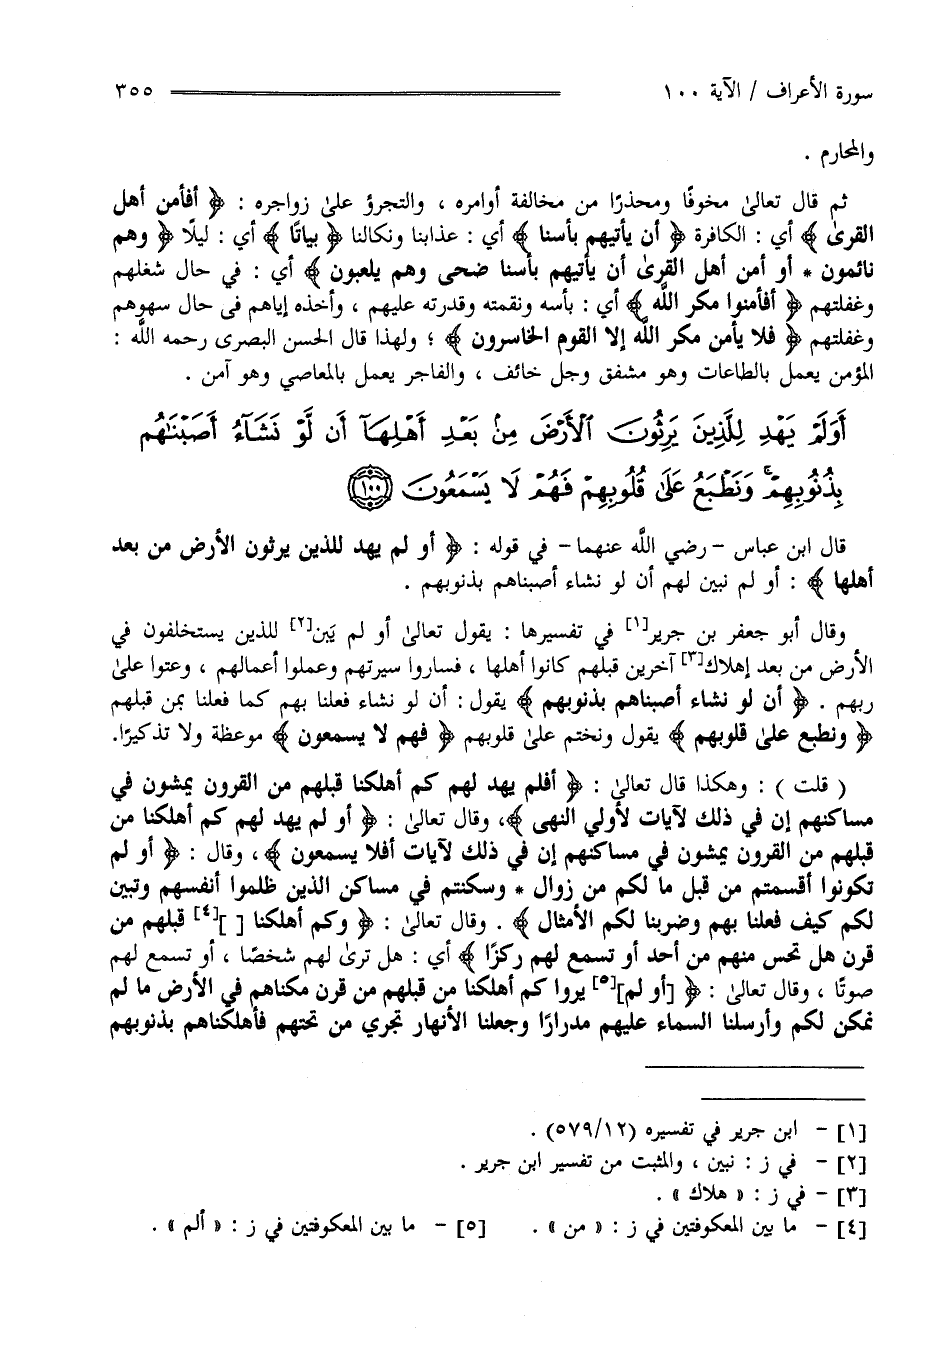 سورة الأعراف / الآية ١٠٠ ٣٥٥
والمحارم .
ثم قال تعالىٰ مخوفًا ومحذرًا من مخالفة أوامره ، والتجرؤ علىٰ زواجره : ﴿ أفأمن أهل
القرىٰ ﴾ أي : الكافرة ﴿ أن يأتيهم بأسنا ﴾ أي : عذابنا ونكالنا ﴿ بياتًا ﴾ أي : ليلًا ﴿ وهم
نائمون * أو أمن أهل القرىٰ أن يأتيهم بأسنا ضحى وهم يلعبون ﴾ أي : في حال شغلهم
وغفلتهم ﴿ أفأمنوا مكر اللَّه ﴾ أي : بأسه ونقمته وقدرته عليهم ، وأخذه إياهم فى حال سهوهم
وغفلتهم ﴿ فلا يأمن مكر اللَّه إلا القوم الخاسرون ﴾ ؛ ولهذا قال الحسن البصرى رحمه اللَّه :
المؤمن يعمل بالطاعات وهو مشفق وجل خائف ، والفاجر يعمل بالمعاصي وهو آمن .
أَوَلَمْ يَهْدِ لِلَّذِينَ يَرِثُونَ ٱلْأَرْضَ مِنۢ بَعْدِ أَهْلِهَآ أَن لَّوْ نَشَآءُ أَصَبْنَٰهُم
بِذُنُوبِهِمْ ۚ وَنَطْبَعُ عَلَىٰ قُلُوبِهِمْ فَهُمْ لَا يَسْمَعُونَ ١٠٠
قال ابن عباس - رضي اللَّه عنهما- في قوله : ﴿ أو لم يهد للذين يرثون الأرض من بعد
أهلها ﴾ : أو لم نبين لهم أن لو نشاء أصبناهم بذنوبهم .
وقال أبو جعفر بن جرير[١] في تفسيرها : يقول تعالىٰ أو لم يَبن[٢] للذين يستخلفون في
الأرض من بعد إهلاك[٣] آخرين قبلهم كانوا أهلها ، فساروا سيرتهم وعملوا أعمالهم ، وعتوا علىٰ
ربهم . ﴿ أن لو نشاء أصبناهم بذنوبهم ﴾ يقول : أن لو نشاء فعلنا بهم كما فعلنا بمن قبلهم
﴿ ونطبع علىٰ قلوبهم ﴾ يقول ونختم علىٰ قلوبهم ﴿ فهم لا يسمعون ﴾ موعظة ولا تذكيرًا.
( قلت ) : وهكذا قال تعالىٰ : ﴿ أفلم يهد لهم كم أهلكنا قبلهم من القرون يمشون في
مساكنهم إن في ذلك لآيات لأولي النهى ﴾، وقال تعالىٰ : ﴿ أو لم يهد لهم كم أهلكنا من
قبلهم من القرون يمشون في مساكنهم إن في ذلك لآيات أفلا يسمعون ﴾ ، وقال : ﴿ أو لم
تكونوا أقسمتم من قبل ما لكم من زوال * وسكنتم في مساكن الذين ظلموا أنفسهم وتبين
لكم كيف فعلنا بهم وضربنا لكم الأمثال ﴾ . وقال تعالىٰ : ﴿ وكم أهلكنا [ ][٤] قبلهم من
قرن هل تحس منهم من أحد أو تسمع لهم ركزًا ﴾ أي : هل ترىٰ لهم شخصًا ، أو تسمع لهم
صوتًا ، وقال تعالىٰ : ﴿ [أو لم][٥] يروا كم أهلكنا من قبلهم من قرن مكناهم في الأرض ما لم
نمكن لكم وأرسلنا السماء عليهم مدرارًا وجعلنا الأنهار تجري من تحتهم فأهلكناهم بذنوبهم
[١] - ابن جرير في تفسيره (٥٧٩/١٢) .
[٢] - في ز : نبين ، والمثبت من تفسير ابن جرير .
[٣] - في ز : « هلاك » .
[٤] - ما بين المعكوفتين في ز : « من » . [٥] - ما بين المعكوفتين في ز : « ألم » .